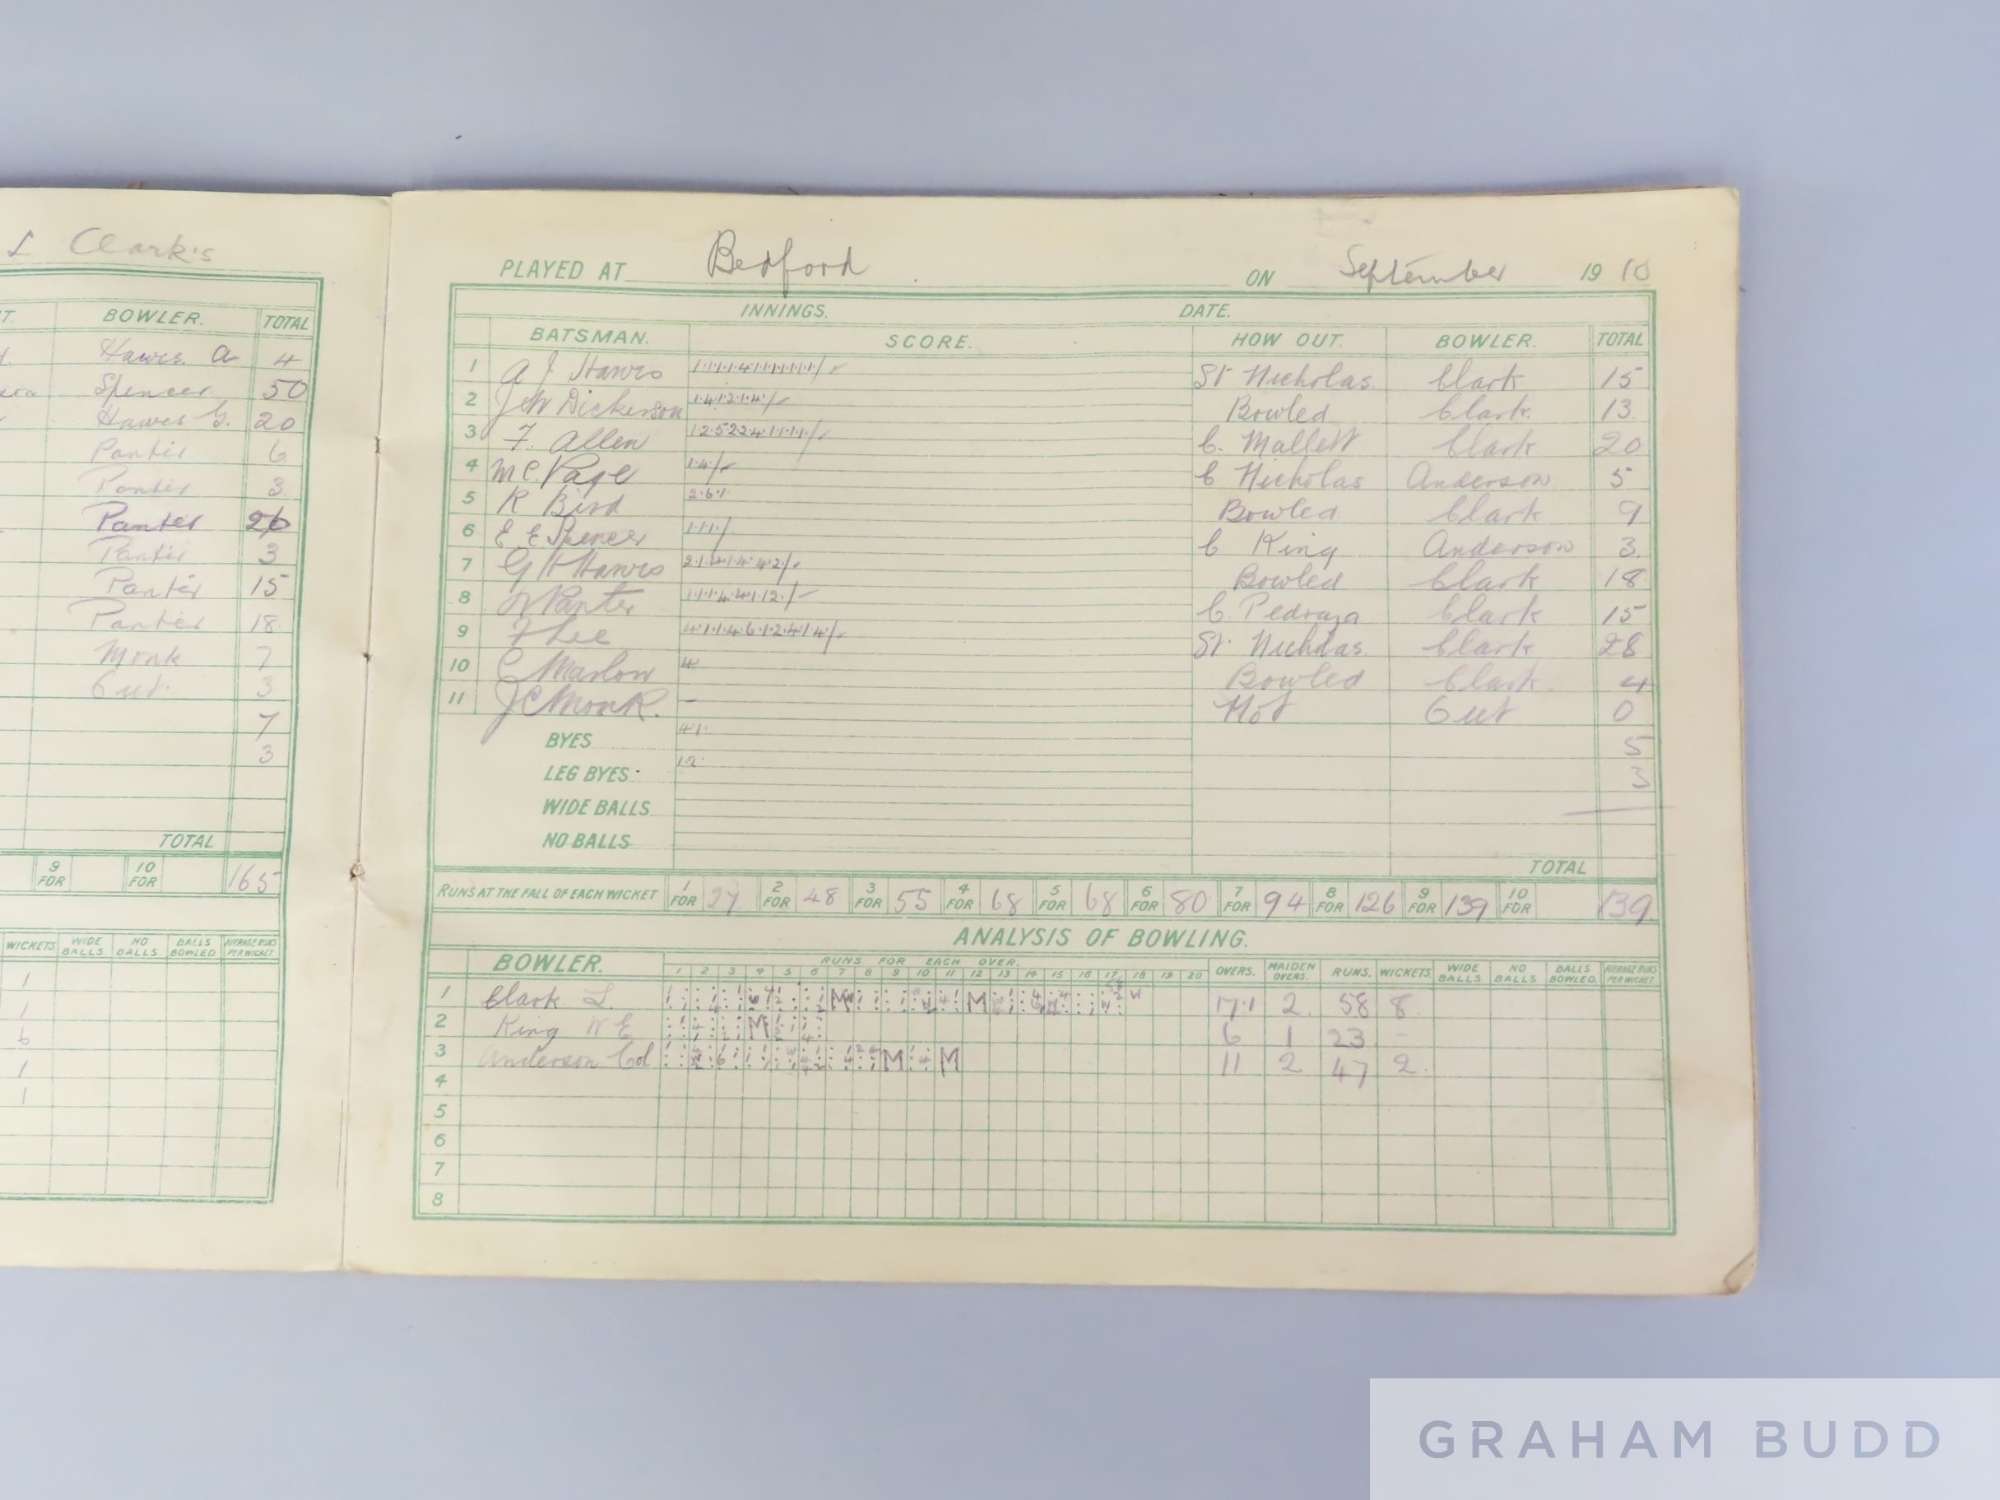 L Clark's
BOWLER. TOTAL
Hawes a 4
Spencer 50
Hawes G. 20
Panter 6
Panter 3
Panter 26
Panter 3
Panter 15
Panter 18
Monk 7
Out 3
7
3
TOTAL
9 FOR 10 FOR 165
WICKETS WIDE BALLS NO BALLS BALLS BOWLED AVERAGE RUNS PER WICKET
1
1
6
1
1
PLAYED AT Bedford ON September 1910
INNINGS. DATE.
BATSMAN. SCORE. HOW OUT. BOWLER. TOTAL
1 A J Hawes St Nicholas Clark 15
2 J W Dickerson Bowled Clark 13
3 F. Allen C. Mallett Clark 20
4 M C. Page C Nicholas Anderson 5
5 R Bird Bowled Clark 9
6 E E Spencer C King Anderson 3
7 G H Hawes Bowled Clark 18
8 Panter C Pedraza Clark 15
9 F Lee St Nicholas Clark 28
10 C Marlow Bowled Clark 4
11 J C Monk. Not Out 0
BYES 41 5
LEG BYES 12 3
WIDE BALLS
NO BALLS
TOTAL
RUNS AT THE FALL OF EACH WICKET 1 FOR 27 2 FOR 48 3 FOR 55 4 FOR 68 5 FOR 68 6 FOR 80 7 FOR 94 8 FOR 126 9 FOR 139 10 FOR 139
ANALYSIS OF BOWLING.
BOWLER. RUNS FOR EACH OVER. OVERS. MAIDEN OVERS. RUNS. WICKETS WIDE BALLS NO BALLS BALLS BOWLED AVERAGE RUNS PER WICKET
1 2 3 4 5 6 7 8 9 10 11 12 13 14 15 16 17 18 19 20
1 Clark L. 17.1 2 58 8
2 King W E 6 1 23 -
3 Anderson Cd 11 2 47 2
4
5
6
7
8
GRAHAM BUDD